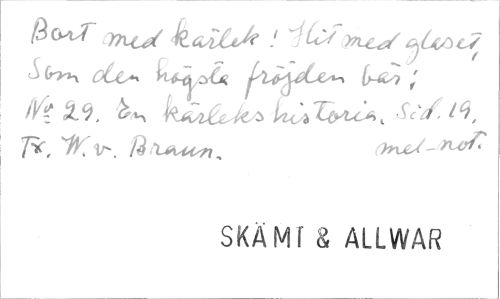 Bort med kärlek! Hit med glaset,
Som den högsta fröjden bär;
No 29. En kärlekshistoria. Sid. 19,
Tx. W. v. Braun. mel-not.
SKÄMT & ALLWAR